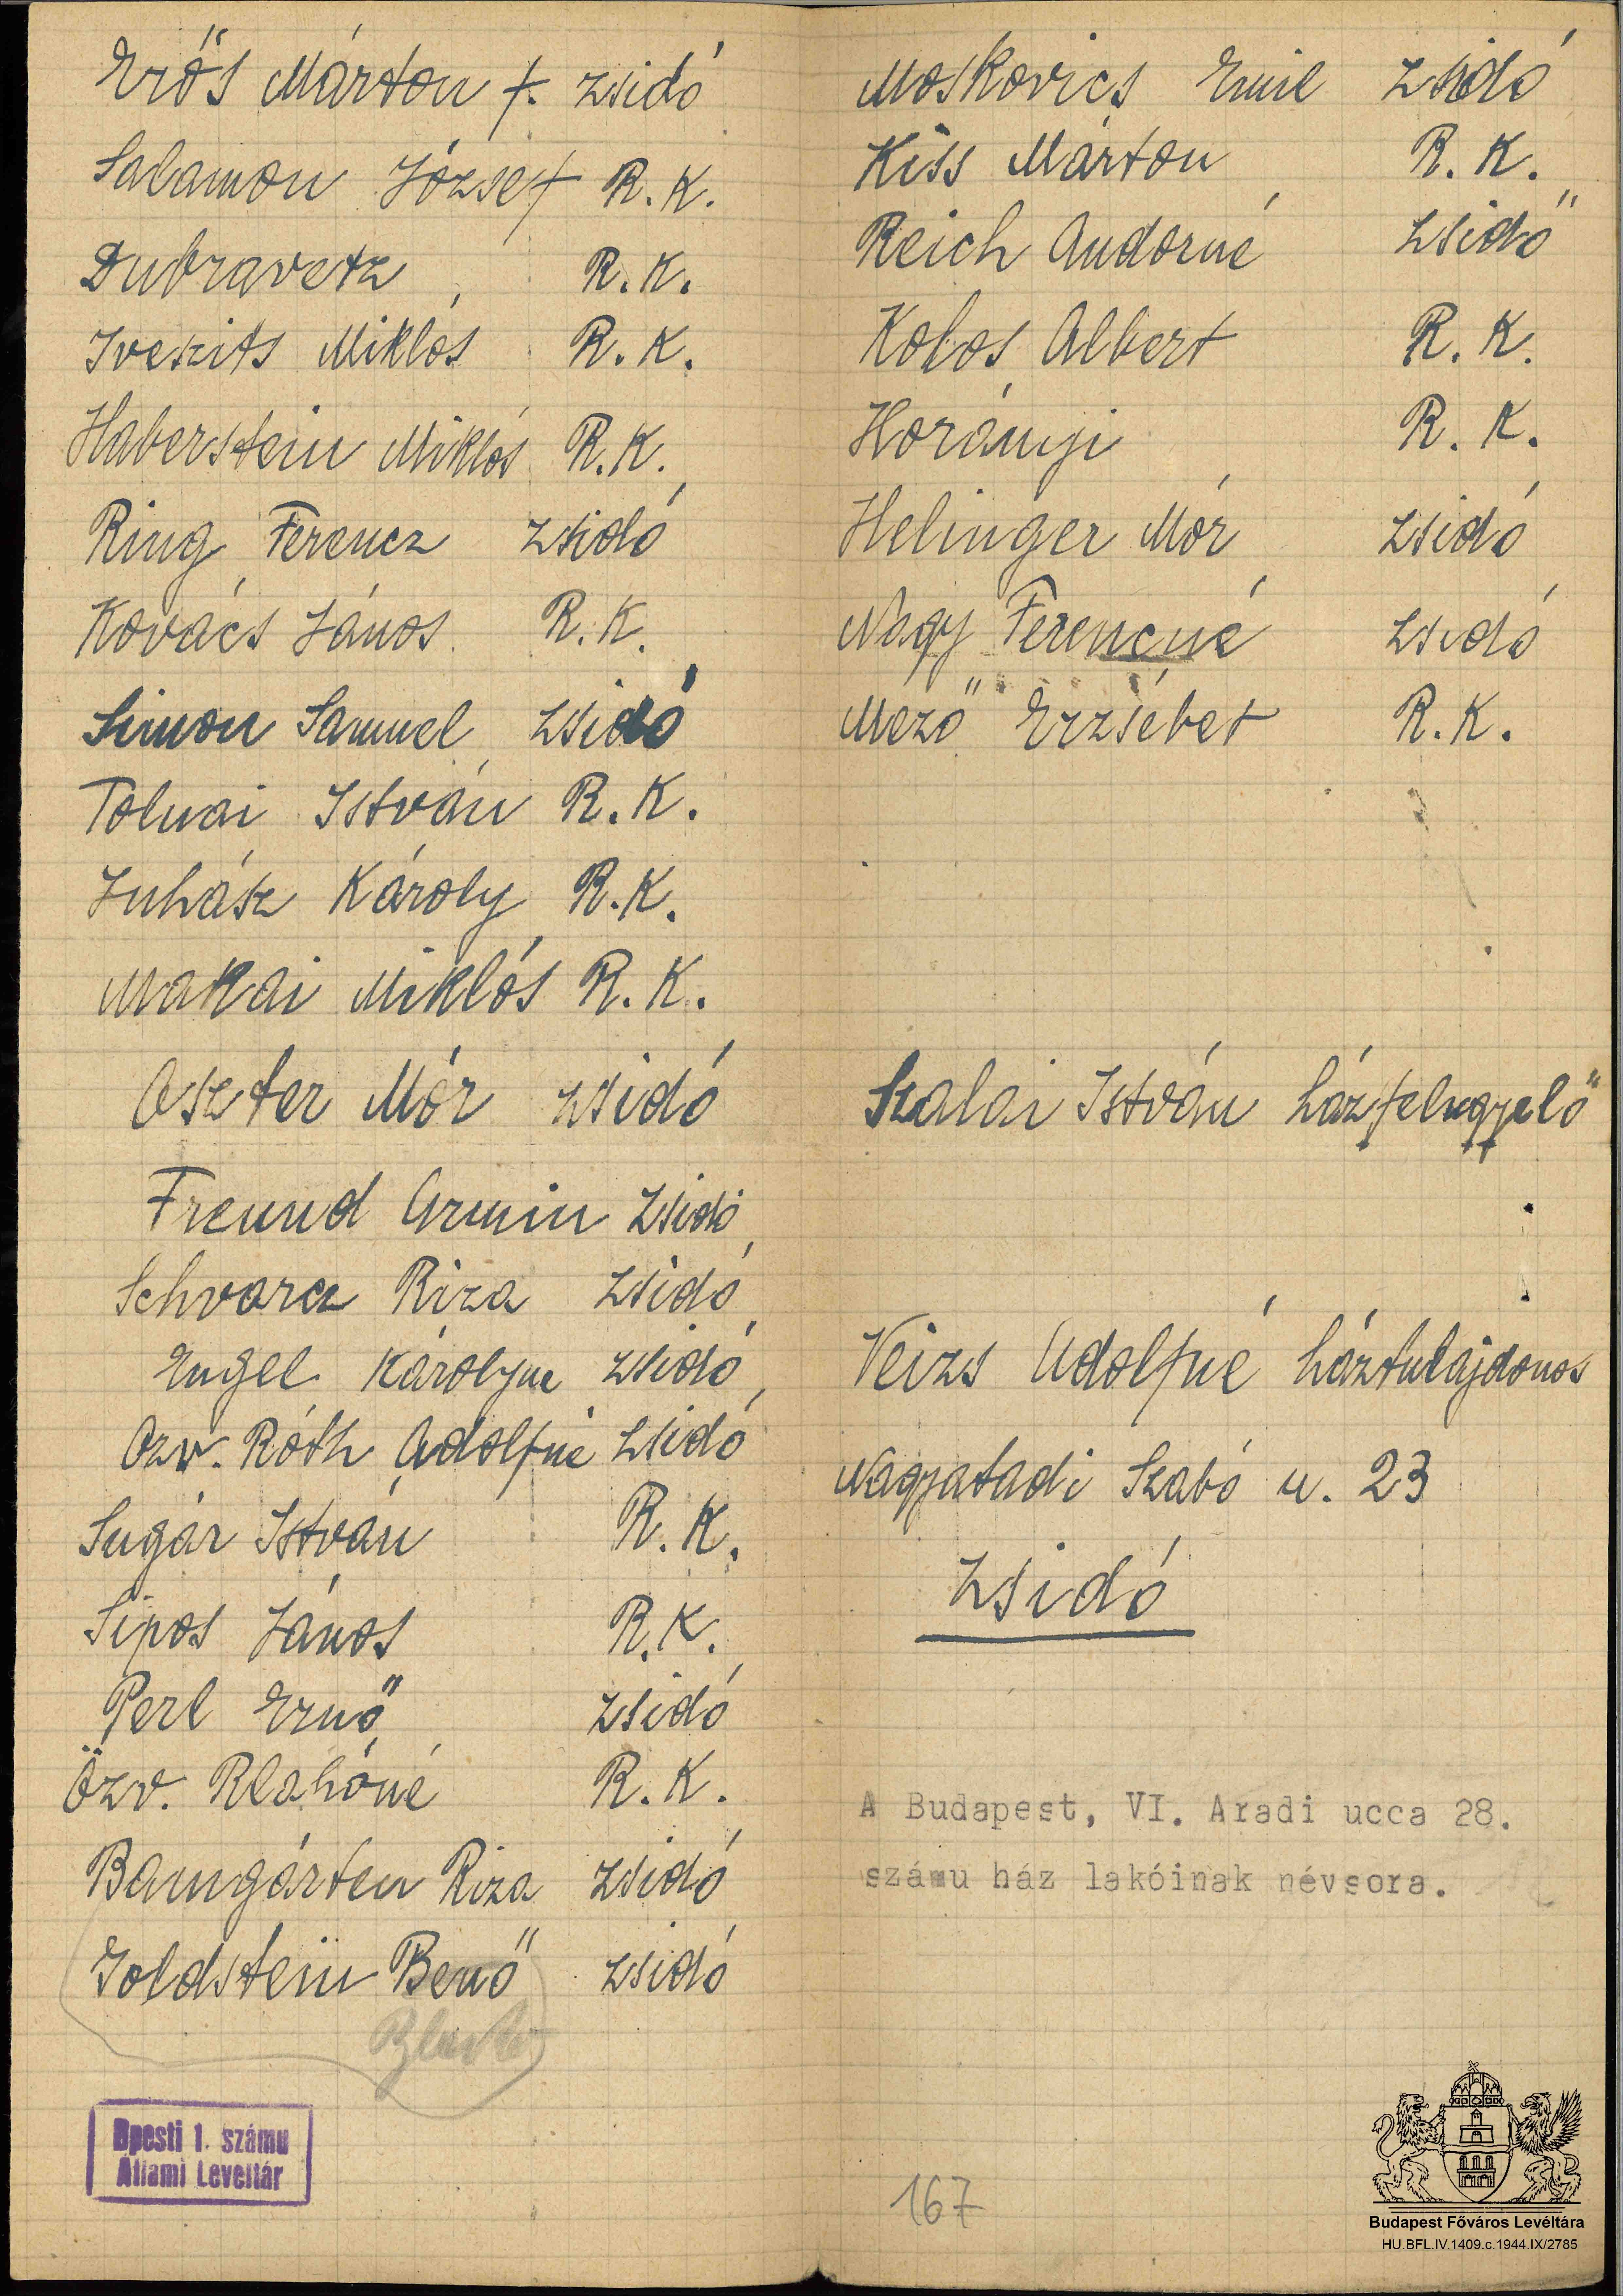 Erős Márton f. zsidó
Salamon József R.K.
Dubravetz R.K.
Iveszits Miklós R.K.
Haberstein Miklós R.K.
Ring Ferencz zsidó
Kovács János R.K.
Simon Samuel zsidó
Tolnai István R.K.
Juhász Károly R.K.
Makai Miklós R.K.
Oszter Mór zsidó
Freund Armin zsidó
Schvarcz Riza zsidó
Engel Károlyne zsidó
Özv. Róth Adolfné zsidó
Sugár István R.K.
Sipos János R.K.
Perl Ernő zsidó
Özv. R.K.
Baumgárten Riza zsidó
Goldstein Benő zsidó
Bpesti 1. számu
Állami Levéltár
Moskovics Emil zsidó
Kiss Márton R.K.
Reich Andorné zsidó
Kolos Albert R.K.
Horányi R.K.
Helinger Mór zsidó
Nagy Ferencné zsidó
Mező Erzsébet R.K.
Szalai István házfelügyelő
Veizs Adolfné háztulajdonos
Nagyatadi Szabó u. 23
zsidó
A Budapest, VI. Aradi ucca 28.
számu ház lakóinak névsora.
167
Budapest Főváros Levéltára
HU.BFL.IV.1409.c.1944.IX/2785